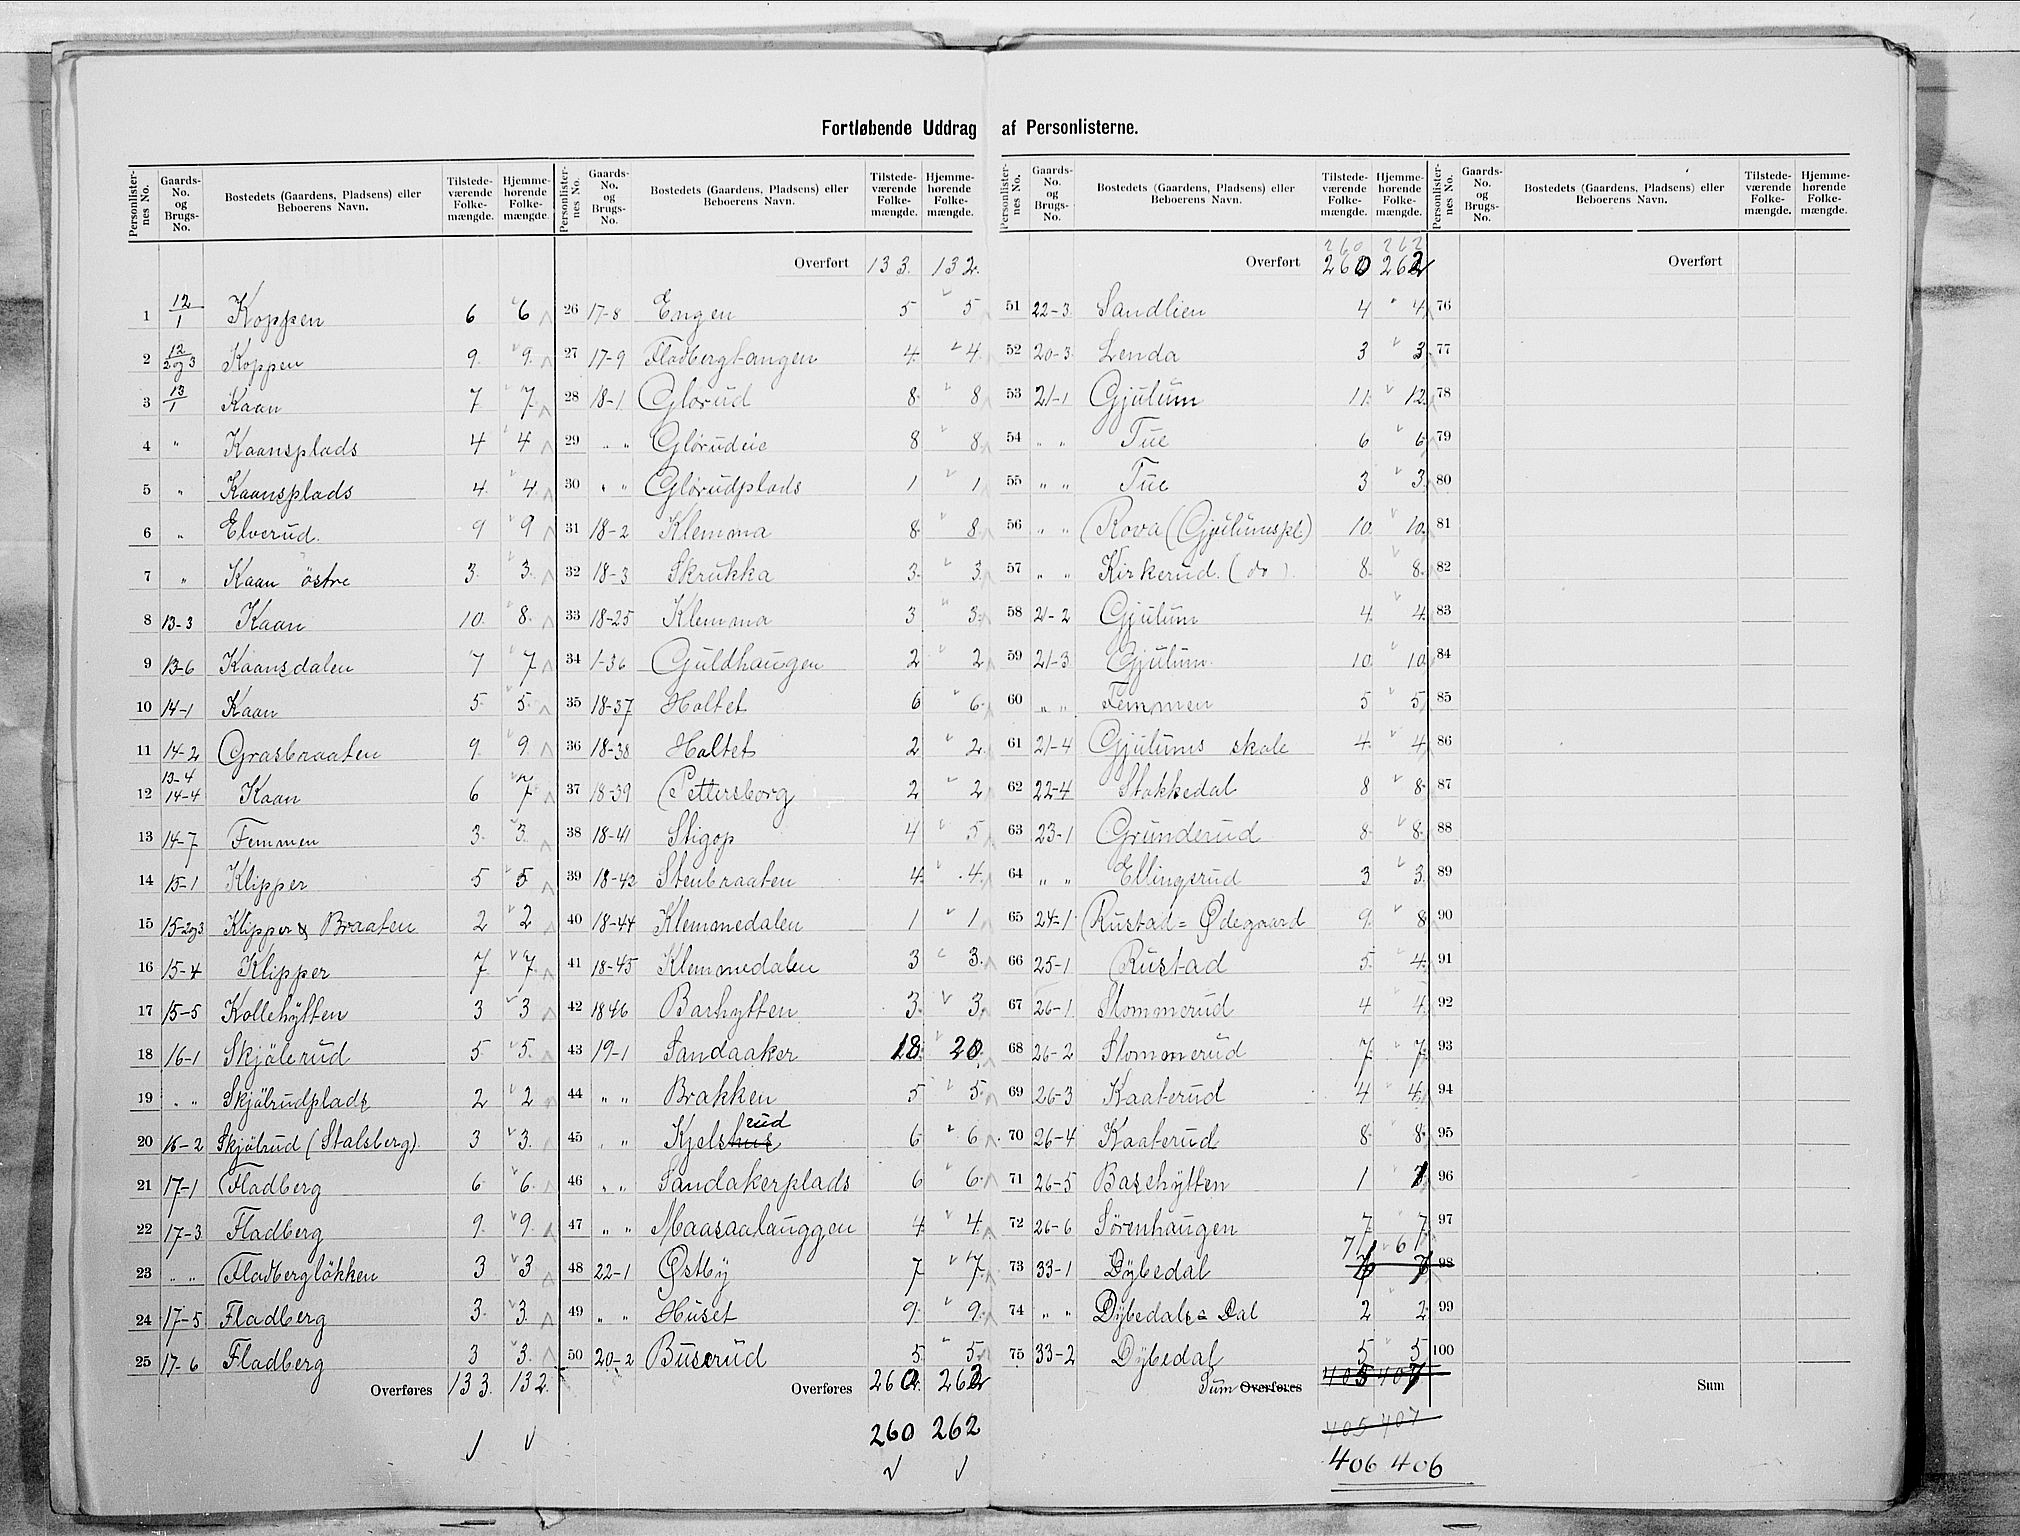 Fortløbende Uddrag af Personlisterne.
Personlisternes No. | Gaards-No. og Brugs-No. | Bostedets (Gaardens, Pladsens) eller Beboerens Navn. | Tilstedeværende Folkemængde. | Hjemmehørende Folkemængde.
1 12/1 Koppen 6 6
2 12/2og3 Koppen 9. 9.
3 13/1 Kaan 7 7.
4 " Kaansplads 4 4
5 " Kaansplads 4. 4.
6 " Elverud. 9 9
7 " Kaan östre 3. 3.
8 13-3 Kaan 10. 8.
9 13-6 Kaansdalen 7 7
10 14-1 Kaan 5. 5.
11 14-2 Grasbraaten 9. 9
12 13-4 14-4 Kaan 6 7
13 14-7 Femmen 3. 3.
14 15-1 Klipper 5 5
15 15-2og3 Klipper & Braaten 2 2
16 15-4 Klipper 7 7.
17 15-5 Kollehytten 3 3
18 16-1 Skjölerud 5 5.
19 " " Skjölrudplads 2 2
20 16-2 Skjölrud (Stalsberg). 3 3.
21 17-1 Fladberg 6. 6.
22 17-3 Fladberg 9. 9.
23 " " Fladberglökken 3 3
24 17-5 Fladberg 3. 3.
25 17-6 Fladberg 3 3.
Overføres 133. 132.
Personlisternes No. | Gaards-No. og Brugs-No. | Bostedets (Gaardens, Pladsens) eller Beboerens Navn. | Tilstedeværende Folkemængde. | Hjemmehørende Folkemængde.
Overført 133. 132.
26 17-8 Engen 5 5
27 17-9 Fladbergtangen 4. 4.
28 18-1 Glorud 8. 8
29 " " Glörudeie 8 8.
30 " " Glörudplads 1 1
31 18-2 Klemma 8. 8.
32 18-3 Skrukka 3. 3.
33 18-25 Klemma 3 3.
34 1-36 Guldhaugen 2 2
35 18-37 Holtet 6 6.
36 18-38 Holtet 2 2.
37 18-39 Pettersborg 2 2
38 18-41 Stigop 4 5
39 18-42 Stenbraaten 4. 4.
40 18-44 Klemmedalen 1 1
41 18-45 Klemmedalen 3 3.
42 1846 Barhytten 3. 3.
43 19-1 Sandaaker 18. 20.
44 " " Brakken 5 5.
45 " " Kjelshus rud 6 6
46 " " Sandakerplads 6 6.
47 " " Maasaalauggen 4 4.
48 22-1 Østby 7 7.
49 " " Huset 9. 9.
50 20-2 Buserud 5. 5.
Overføres 260 262
260 262
Personlisternes No. | Gaards-No. og Brugs-No. | Bostedets (Gaardens, Pladsens) eller Beboerens Navn. | Tilstedeværende Folkemængde. | Hjemmehørende Folkemængde.
260 262
Overført 260 262
51 22-3. Sandlien 4 4
52 20-3. Lenda 3 3
53 21-1 Gjulum 11. 12.
54 " " Tue 6 6
55 " " Tue 3 3.
56 " " Rova (Gjulumspl.) 10. 10.
57 " " Kirkerud. (do). 8. 8.
58 21-2 Gjulum 4. 4.
59 21-3. Gjulum. 10. 10.
60 " " Femmen 5 5
61 21-4 Gjulums skole 4. 4
62 22-4 Stokkedal 8 8.
63 23-1 Grunderud 8. 8.
64 " " Ellingsrud 3 3.
65 24-1 Rustad = Ødegaard 9. 8
66 25-1 Rustad 5. 4.
67 26-1 Slommerud 4 4.
68 26-2 Slommerud 7. 7.
69 26-3 Kaaterud 4 4.
70 26-4 Kaaterud 8. 8.
71 26-5 Basehytten 1 1
72 26-6 Sörenhaugen 7 7.
7 6
73 33-1 Dybedal
74 " " Dybedals = Dal 2 2.
75 33-2 Dybedal 5 5
Sum Overføres 405 407
405 407
406 406
Personlisternes No. | Gaards-No. og Brugs-No. | Bostedets (Gaardens, Pladsens) eller Beboerens Navn. | Tilstedeværende Folkemængde. | Hjemmehørende Folkemængde.
Overført
76
77
78
79
80
81
82
83
84
85
86
87
88
89
90
91
92
93
94
95
96
97
98
99
100
Sum